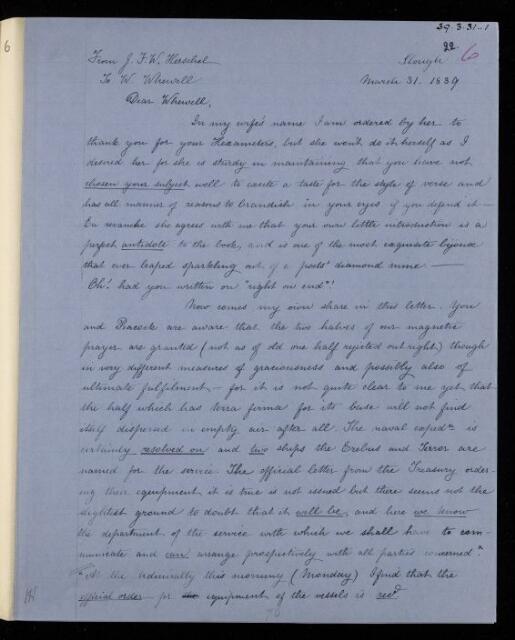 39.3.31-1
22
6
6
From J. F. W. Herschel Slough
To W. Whewell March 31. 1839
Dear Whewell,
In my wife's name I am ordered by her to
thank you for your Hexameters, but she wont do it herself as I
desired her for she is sturdy in maintaining that you have not
chosen your subject well to create a taste for the style of verse and
has all manner of reasons to brandish in your eyes if you defend it —
En revanche she agrees with me that your own little introduction is a
perfect antidote to the book, and is one of the most exquisite
that ever leaped sparkling out of a poets' diamond mine —
Oh! had you written on "right on end"!
Now comes my own share in this letter. You
and Peacock are aware that the two halves of our magnetic
prayer are granted (not as of old one half rejected outright) though
in very different measures of graciousness and possibly also of
ultimate fulfilment — for it is not quite clear to me yet that
the half which has terra firma for its base will not find
itself dispersed in empty air after all. The naval expedn. is
certainly resolved on and two ships the Erebus and Terror are
named for the service. The official letter from the Treasury order-
ing their equipment it is true is not issued but there seems not the
slightest ground to doubt that it will be, and here we know
the department of the service with which we shall have to com-
municate and can arrange prospectively with all parties concerned.
At the Admiralty this morning (Monday) I find that the
official order for equipment of the vessels is recd.